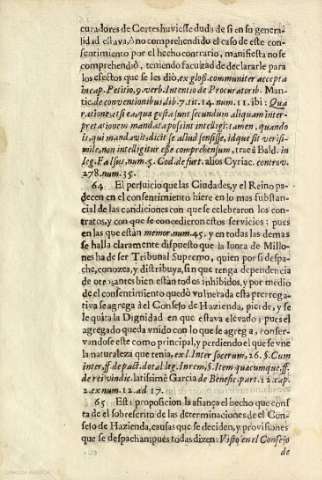 curadores de Cortes huviesse duda de si en su genera-
lidad estava, ò no comprehendido el caso de este con-
sentimiento por el hecho contrario, manifiesta no se
comprehendiò, teniendo facultad de declararle para
los efectos que se les diò, ex glos. communiter accepta
in cap. Petitio, 9. verb. Intentio de Procuratorib. Man-
tic. de conventionibus lib. 7. tit. 14. num. 11. ibi: Qua
ratione etsi ea, quæ gesta sunt secundum aliquam inter-
pretationem mandata possint intelligi, tamen, quando
is, qui mandavit, dicit se aliud sensisse, idque sit verisi-
mile, non intelligitur esse comprehensum, traë Bald. in
leg. Falsus, num. 5. Cod. de furt. alios Cyriac. controv.
278. num. 35.
64 El perjuicio que las Ciudades, y el Reino pa-
decen en el consentimiento hiere en lo mas substan-
cial de las condiciones con que se celebraron los con-
tratos, y con que se concedieron estos servicios; pues
en las que están memor. num. 45. y en todas las demas
se halla claramente dispuesto que la Iunta de Millo-
nes ha de ser Tribunal Supremo, quien por si despa-
che, conozca, y distribuya, sin que tenga dependencia
de otro, antes bien están todos inhibidos, y por medio
de el consentimiento quedò vulnerada esta prerroga-
tiva se agrega del Consejo de Hazienda, pierde, y se
le quita la Dignidad en que estava elevado; pues el
agregado queda vnido con lo que se agrega, conser-
vandose este como principal, y perdiendo el que se vne
la naturaleza que tenia, ex l. Inter socerum, 26. §. Cum
inter, ff. de pact. dotal. leg. In rem, §. Item quacumque, ff.
de rei vindic. latissimè Garcia de Benefic. part. 12. cap.
2. ex num. 12. ad 17.
65 Esta proposicion la afiança el hecho que cons-
ta de el sobreserito de las determinaciones de el Con-
sejo de Hazienda, causas que se deciden, y provisiones
que se despachan, pues todas dizen: Visto en el Consejo
de